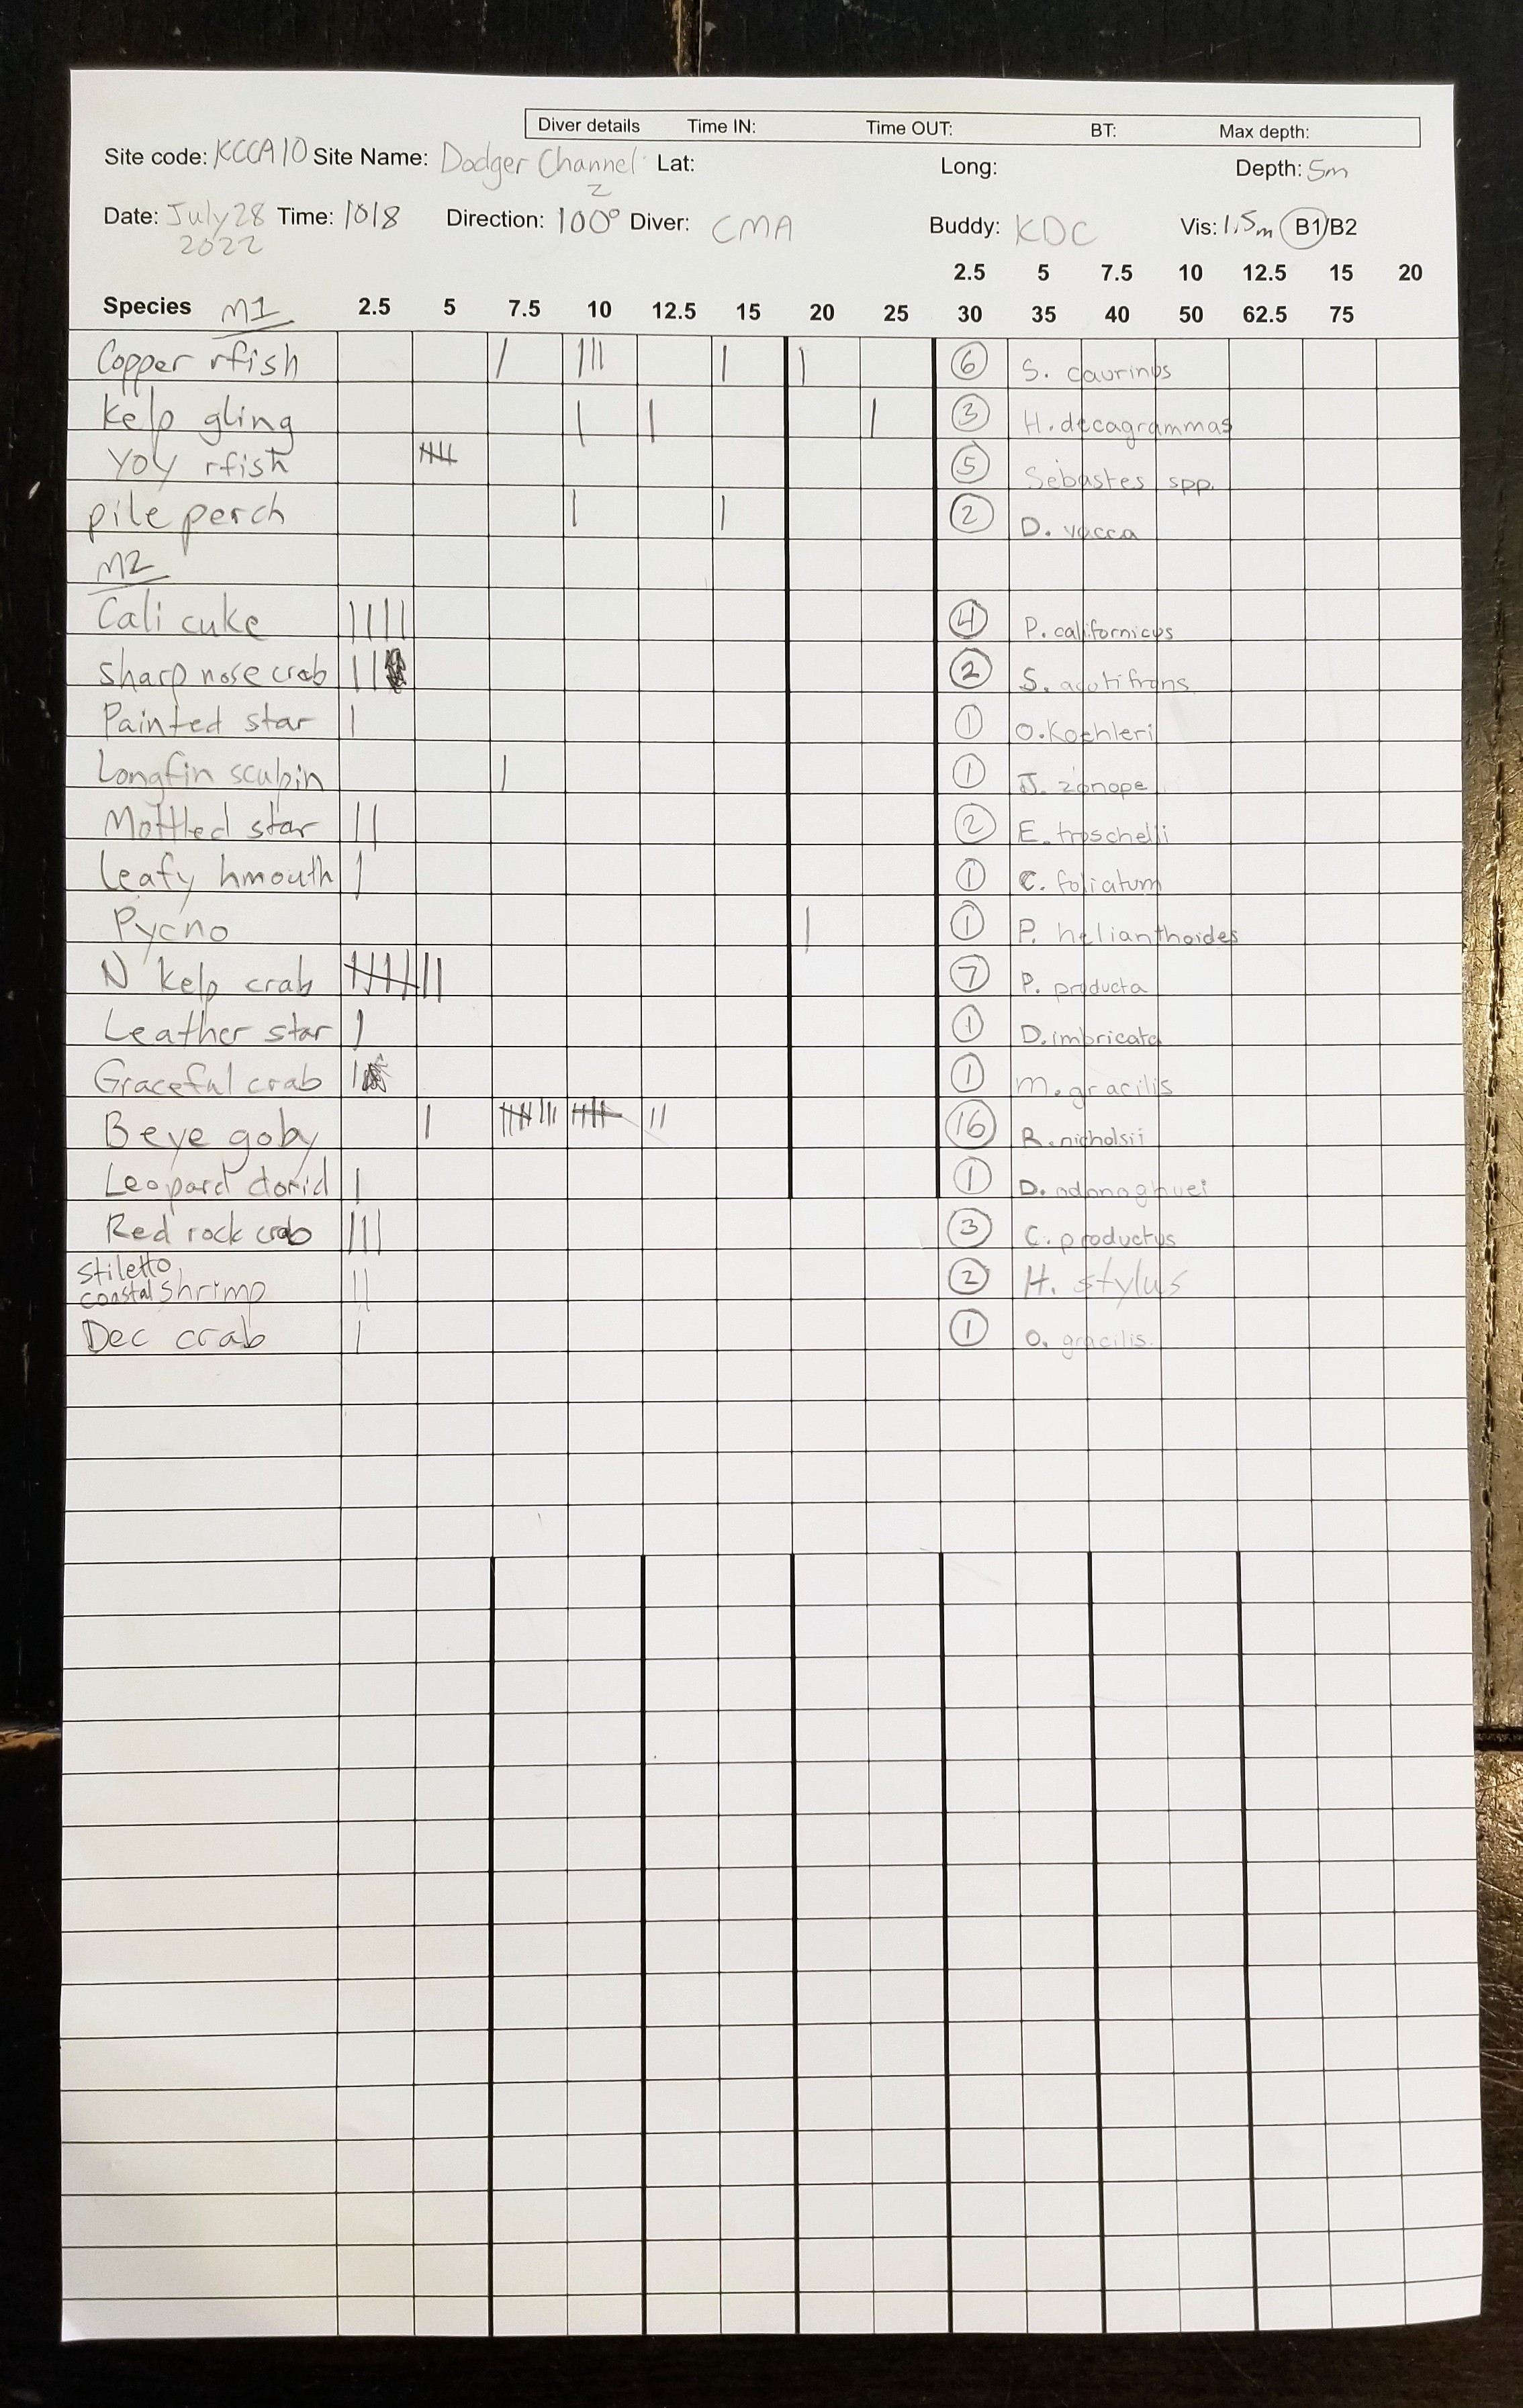 Diver details Time IN: Time OUT: BT: Max depth:
Site code: KCCA10 Site Name: Dodger Channel 2 Lat: Long: Depth: 5m
Date: July 28 2022 Time: 1018 Direction: 100° Diver: CMA Buddy: KDC Vis: 1.5m B1/B2
2.5 5 7.5 10 12.5 15 20
Species M1 2.5 5 7.5 10 12.5 15 20 25 30 35 40 50 62.5 75
Copper rfish | ||| | | 6 S. caurinus
Kelp gling | | | 3 H. decagrammas
YOY rfish 卌 5 Sebastes spp.
pile perch | | 2 D. vacca
M2
Cali cuke |||| 4 P. californicus
sharp nose crab || 2 S. acutifrons
Painted star | 1 O. Koehleri
Longfin sculpin | 1 J. zonope
Mottled star || 2 E. troschelii
Leafy hmouth | 1 C. foliatum
Pycno | 1 P. helianthoides
N kelp crab 卌 || 7 P. producta
Leather star | 1 D. imbricata
Graceful crab | 1 M. gracilis
B eye goby | 卌 ||| 卌 || 16 R. nicholsii
Leopard dorid | 1 D. odonoghuei
Red rock crab ||| 3 C. productus
Stiletto coastal shrimp || 2 H. stylus
Dec crab | 1 O. gracilis.